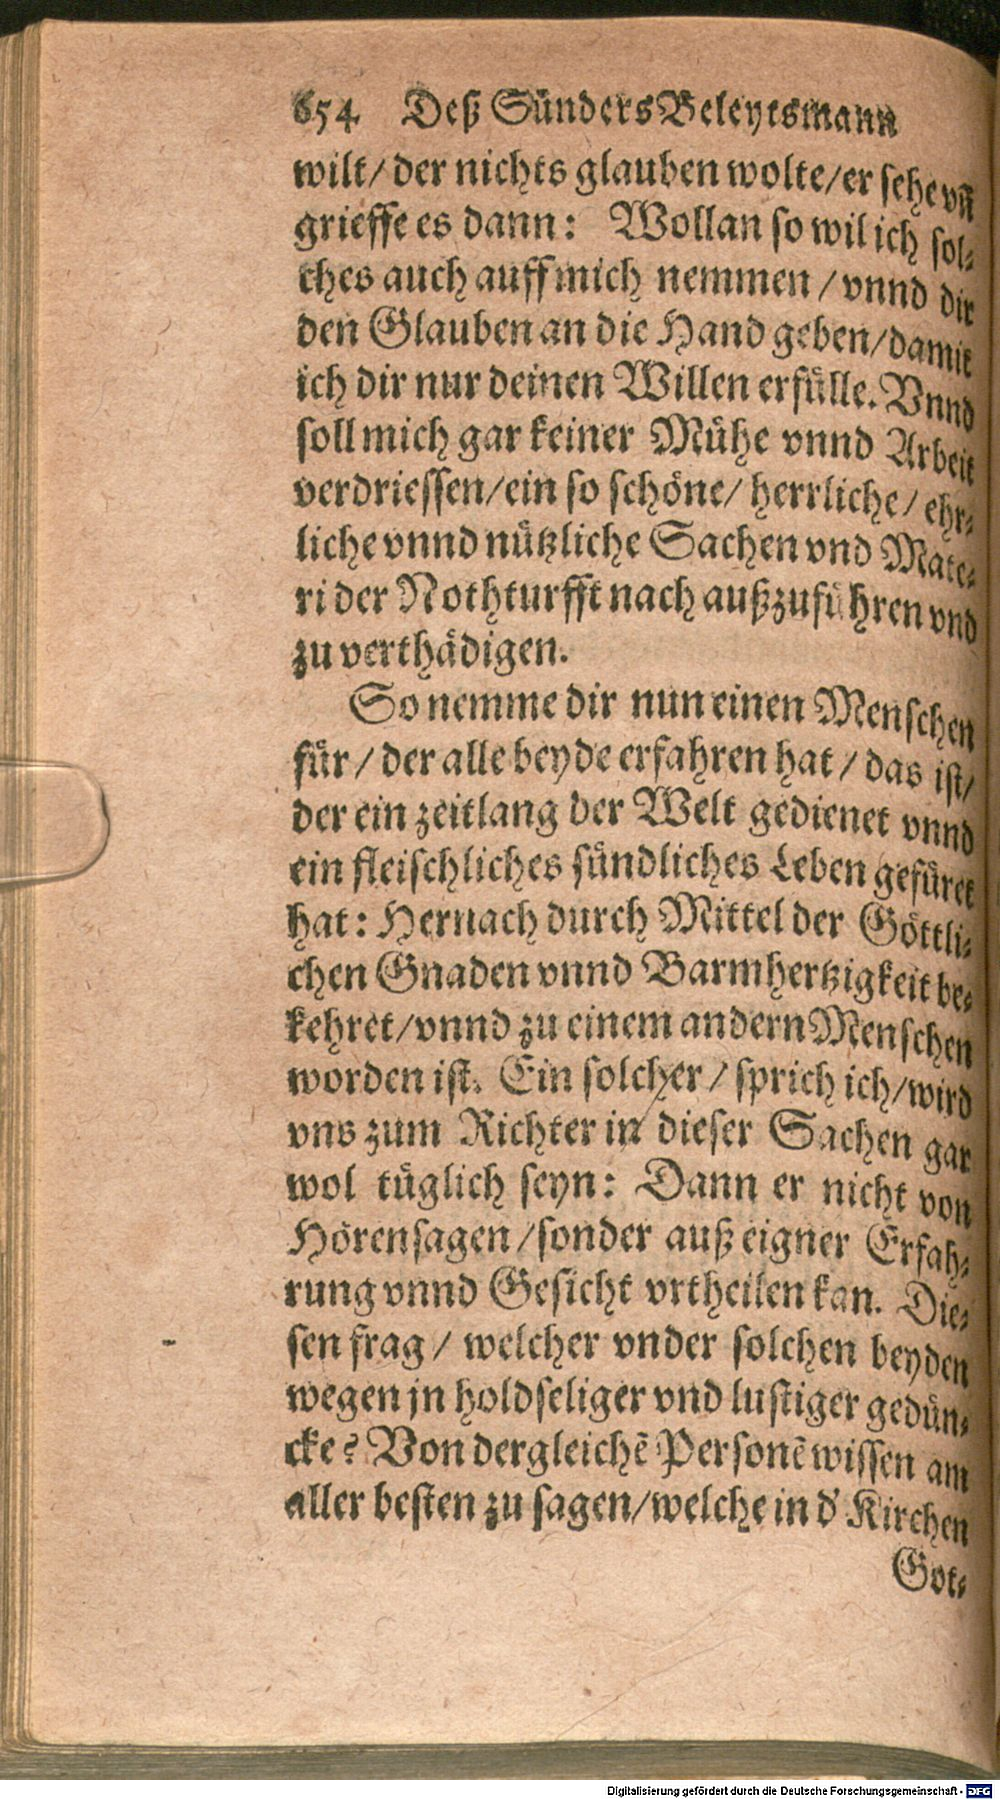 654 Deß Sünders Beleytsmann
wilt/ der nichts glauben wolte/er sehe vñ
grieffe es dann: Wollan so wil ich sol-
ches auch auff mich nemmen / vnnd dir
den Glauben an die Hand geben/damit
ich dir nur deinen Willen erfülle. Vnnd
soll mich gar keiner Mühe vnnd Arbeit
verdriessen/ein so schöne/ herrliche/ ehr-
liche vnnd nützliche Sachen vnd Mate-
ri der Nothturfft nach außzuführen vnd
zu verthädigen.
So nemme dir nun einen Menschen
für / der alle beyde erfahren hat / das ist/
der ein zeitlang der Welt gedienet vnnd
ein fleischliches sündliches Leben gefüret
hat: Hernach durch Mittel der Göttli-
chen Gnaden vnnd Barmhertzigkeit be-
kehret/vnnd zu einem andern Menschen
worden ist. Ein solcher / sprich ich/wird
vns zum Richter in dieser Sachen gar
wol tüglich seyn: Dann er nicht von
Hörensagen /sonder auß eigner Erfah-
rung vnnd Gesicht vrtheilen kan. Die-
sen frag / welcher vnder solchen beyden
wegen jn holdseliger vnd lustiger gedün-
cke? Von dergleichẽ Personẽ wissen am
aller besten zu sagen/welche in d' Kirchen
Got-
Digitalisierung gefördert durch die Deutsche Forschungsgemeinschaft - DFG